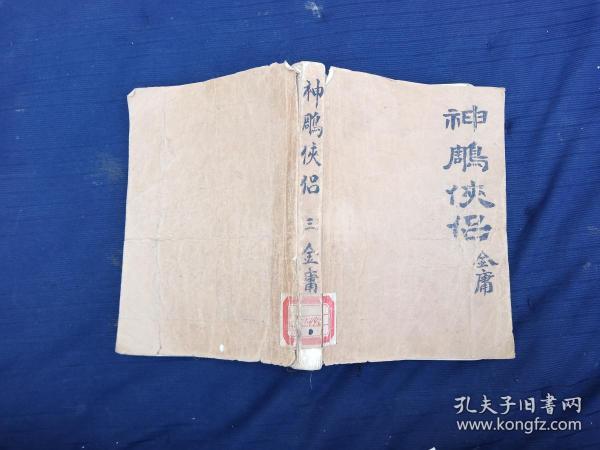 神鵰俠侶
金庸
神鵰俠侶 三 金庸
孔夫子旧书网
www.kongfz.com